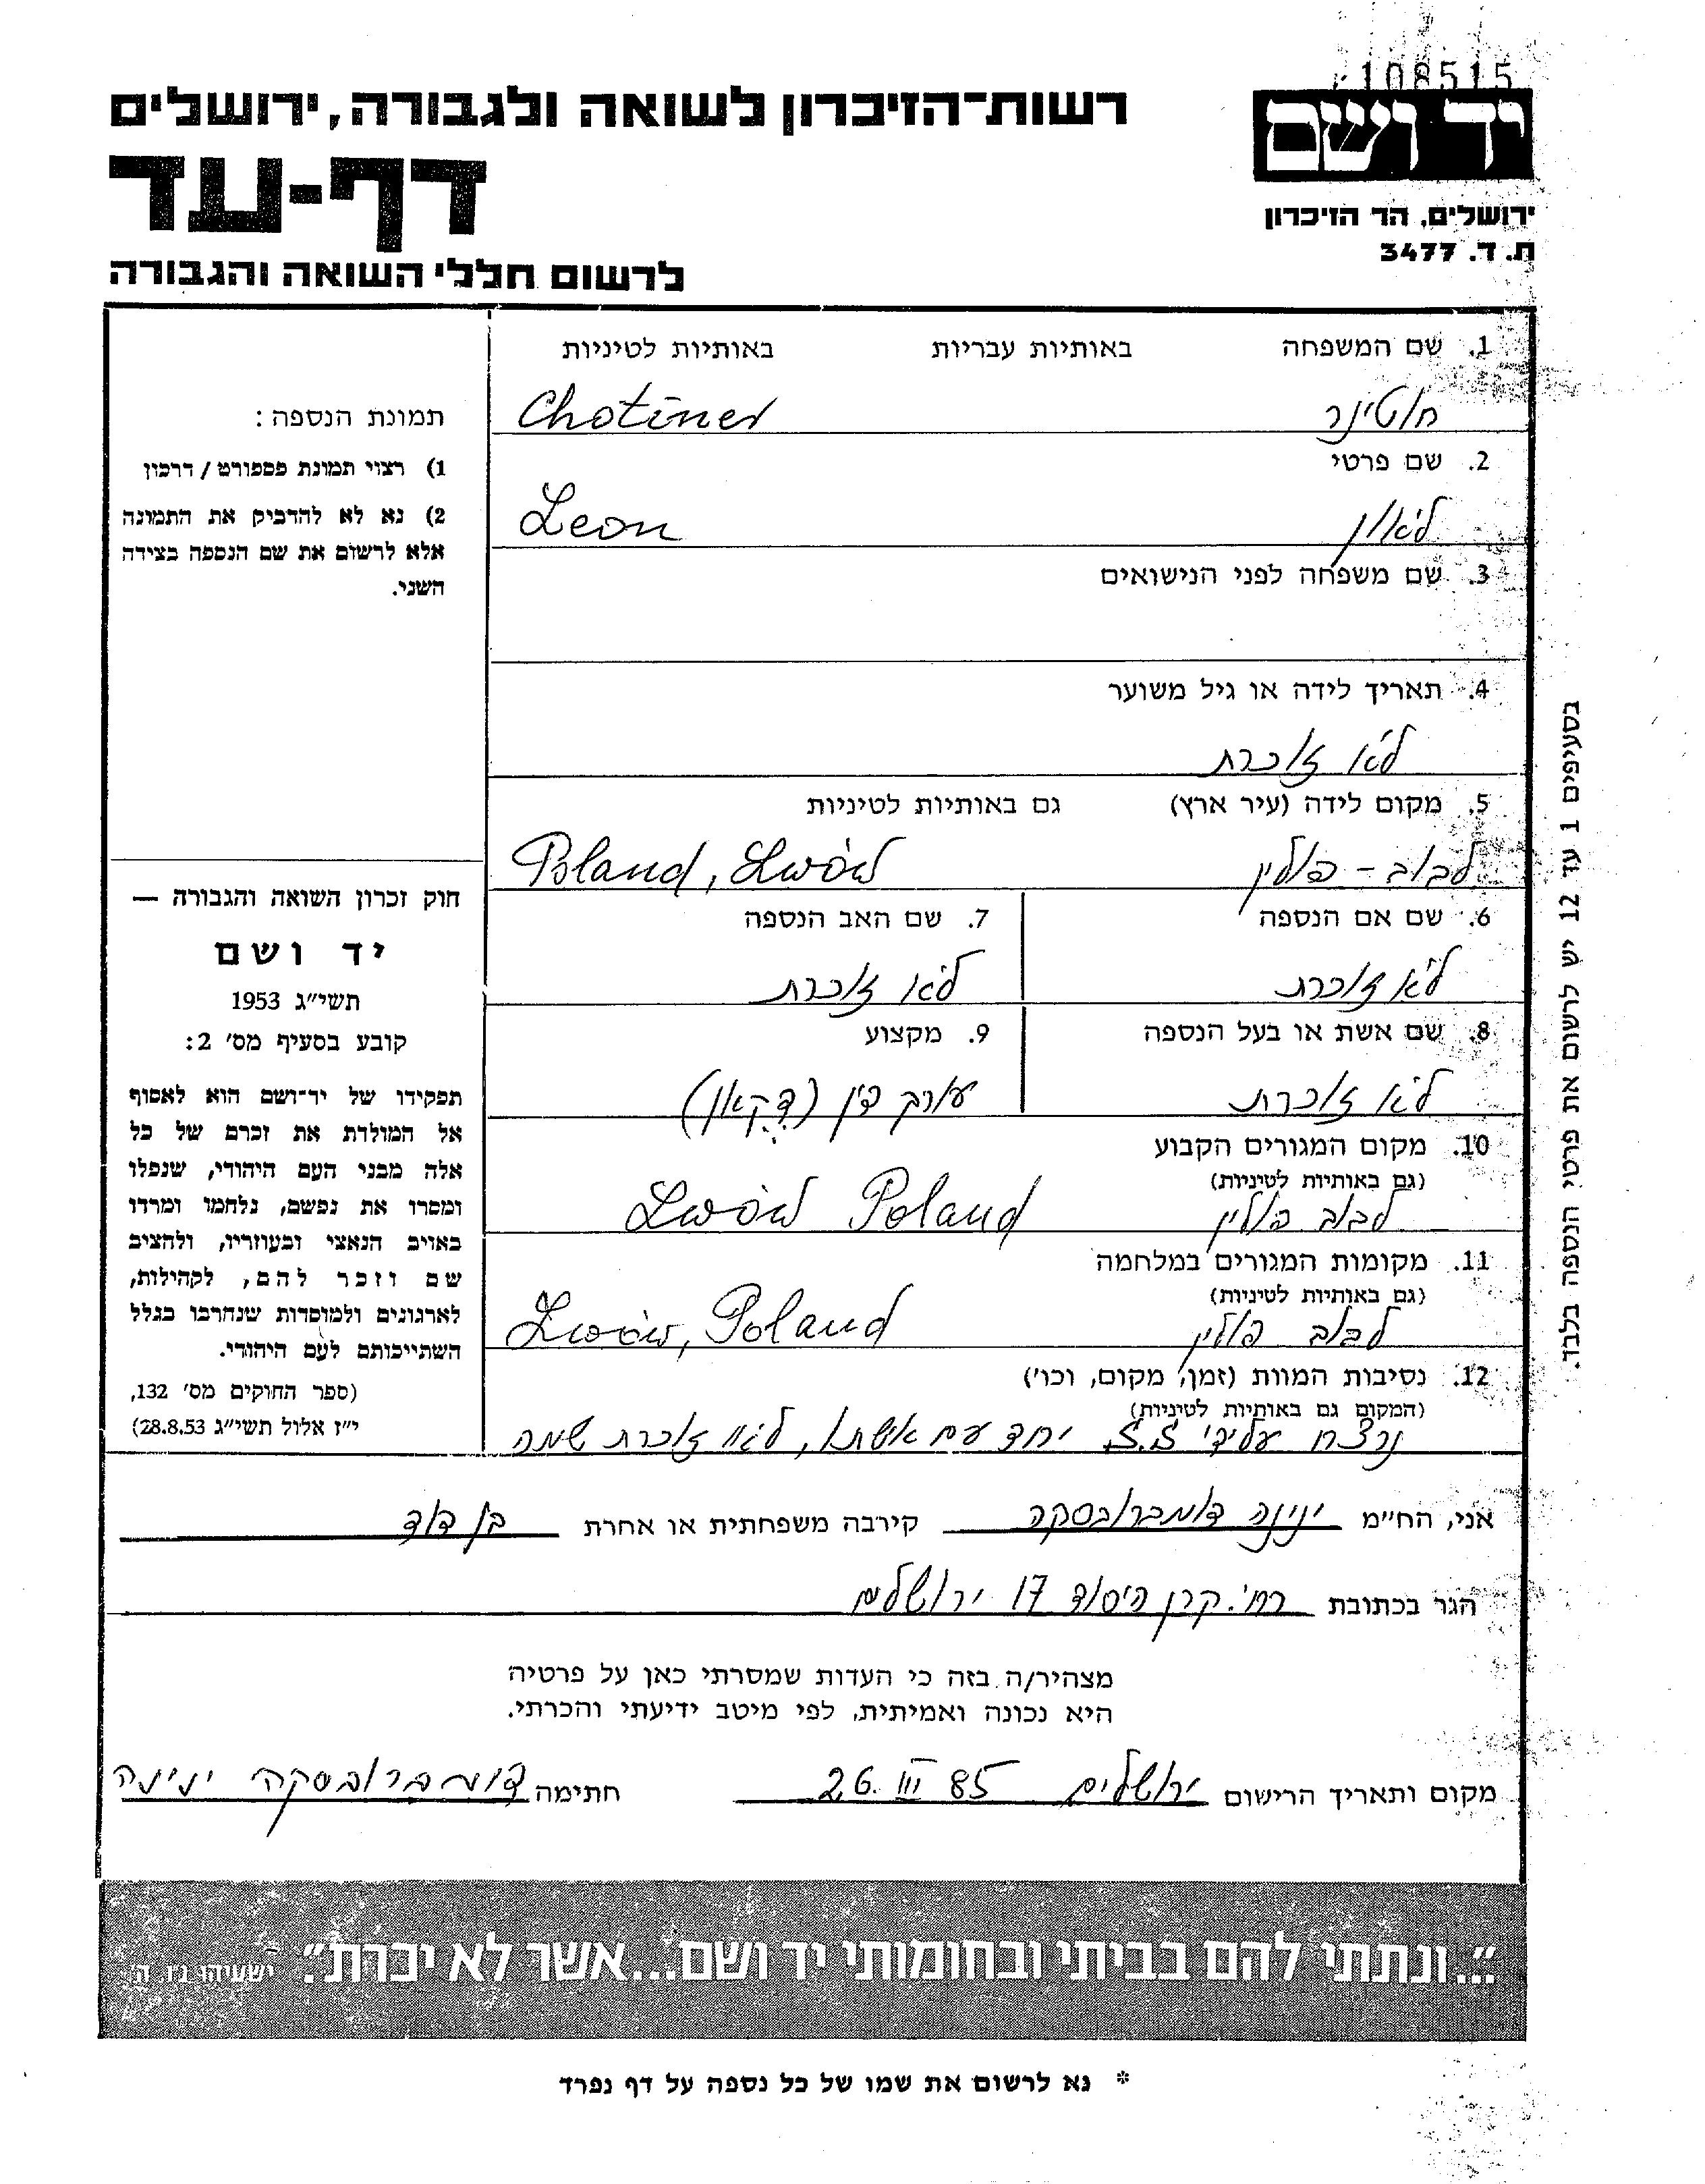 108515
יד ושם
ירושלים, הר הזיכרון
ת.ד. 3477
רשות-הזיכרון לשואה ולגבורה, ירושלים
דף-עד
לרשום חללי השואה והגבורה
1. שם המשפחה באותיות עבריות באותיות לטיניות
חוטינר Chotiner
2. שם פרטי
לאון Leon
3. שם משפחה לפני הנישואים
4. תאריך לידה או גיל משוער
לא זוכרת
5. מקום לידה (עיר ארץ) גם באותיות לטיניות
לבוב - פולין Poland, Lwów
6. שם אם הנספה 7. שם האב הנספה
לא זוכרת לא זוכרת
8. שם אשת או בעל הנספה 9. מקצוע
לא זוכרת עורך דין (דקאן)
10. מקום המגורים הקבוע
(גם באותיות לטיניות)
לבוב פולין Lwów Poland
11. מקומות המגורים במלחמה
(גם באותיות לטיניות)
לבוב פולין Lwów, Poland
12. נסיבות המוות (זמן, מקום, וכו')
(המקום גם באותיות לטיניות)
נרצח על ידי S.S. יחד עם אשתו, לא זוכרת שמה
תמונת הנספה:
1) רצוי תמונת פספורט / דרכון
2) נא לא להדביק את התמונה
אלא לרשום את שם הנספה בצידה
השני.
חוק זכרון השואה והגבורה —
יד ושם
תשי״ג 1953
קובע בסעיף מס׳ 2:
תפקידו של יד־ושם הוא לאסוף
אל המולדת את זכרם של כל
אלה מבני העם היהודי, שנפלו
ומסרו את נפשם, נלחמו ומרדו
באויב הנאצי ובעוזריו, ולהציב
שם וזכר להם, לקהילות,
לארגונים ולמוסדות שנחרבו בגלל
השתייכותם לעם היהודי.
(ספר החוקים מס׳ 132,
י״ז אלול תשי״ג 28.8.53)
בסעיפים 1 עד 12 יש לרשום את פרטי הנספה בלבד.
אני, הח״מ ינינה דומברובסקה קירבה משפחתית או אחרת בן דוד
הגר בכתובת רח׳ קרן היסוד 17 ירושלים
מצהיר/ה בזה כי העדות שמסרתי כאן על פרטיה
היא נכונה ואמיתית, לפי מיטב ידיעתי והכרתי.
מקום ותאריך הרישום ירושלים 26. III 85 חתימה דומברובסקה ינינה
״...ונתתי להם בביתי ובחומותי יד ושם...אשר לא יכרת״. ישעיהו נ״ו, ה׳
* נא לרשום את שמו של כל נספה על דף נפרד